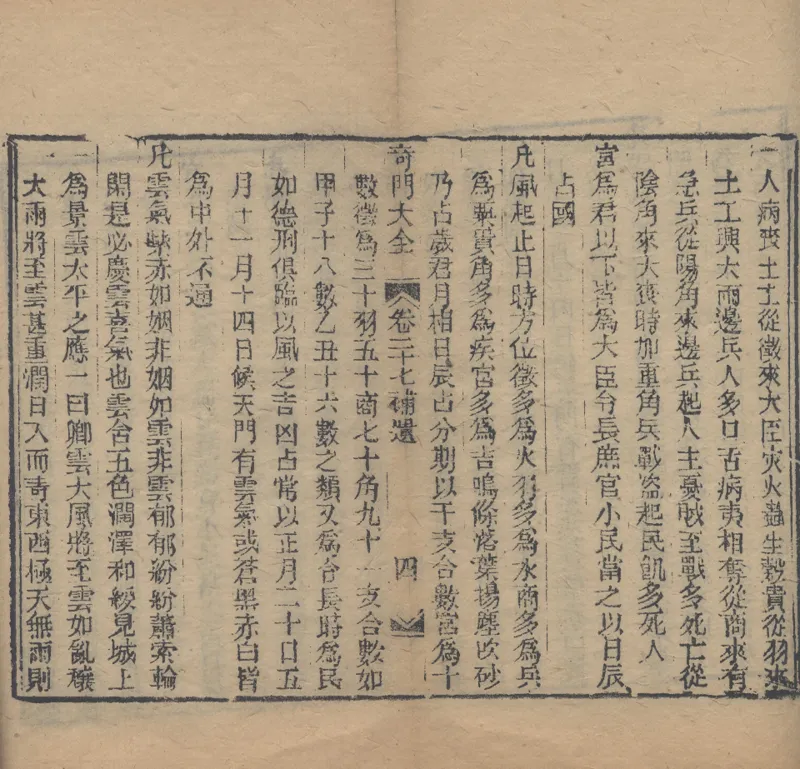 人病喪土工從徵來大臣灾火蟲生穀貴從羽來
土工興大雨邊兵人多口舌病夷相奪從商來有
急兵從陽角來邊兵起人主憂賊至戰多死亡從
陰角來大喪時加重角兵戰盜起民飢多死人
宮為君以下皆為大臣台長庶官小民當之以日辰
占國
凡風起止日時方位徵多為火羽多為水商多為兵
為貴角多為疾宮多為吉鳴條落葉揚塵吹砂
乃占歲君月相日辰占分期以干支合數宮為十
奇門大全 卷二十七補遺 四
數徵為三十羽五十商七十角九十一支合數如
甲子十八數乙丑十六數之類又為台長時為民
如德刑俱臨以風之吉凶占常以正月二十日五
月十一月十四日候天門有雲氣或蒼黑赤白皆
為中外不通
凡雲氣紫赤如姻非姻如雲非雲郁郁紛紛蕭索輪
囷是必慶雲喜氣也雲含五色潤澤和緩見城上
為景雲太平之應一曰卿雲大風將至雲如亂穰
大雨將至雲甚重潤日入而奇東西極天無雨則